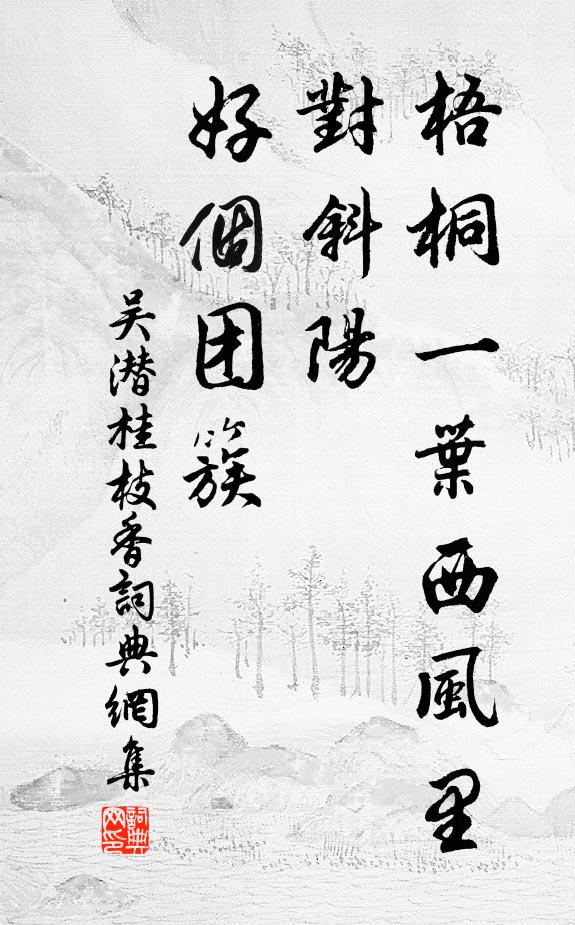 梧桐一葉西風里
對斜陽
好個团簇
吴潜桂枝香詞典網集
詞典网印